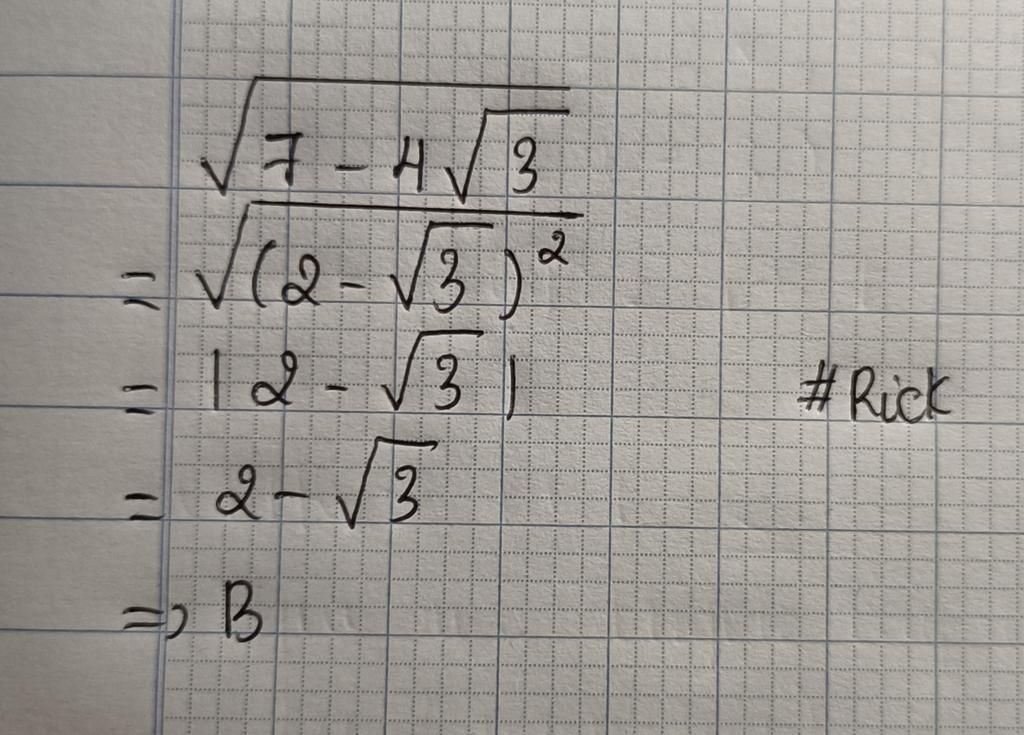 √(7 - 4√3)
= √((2 - √3)²)
= |2 - √3|
#Rick
= 2 - √3
=> B